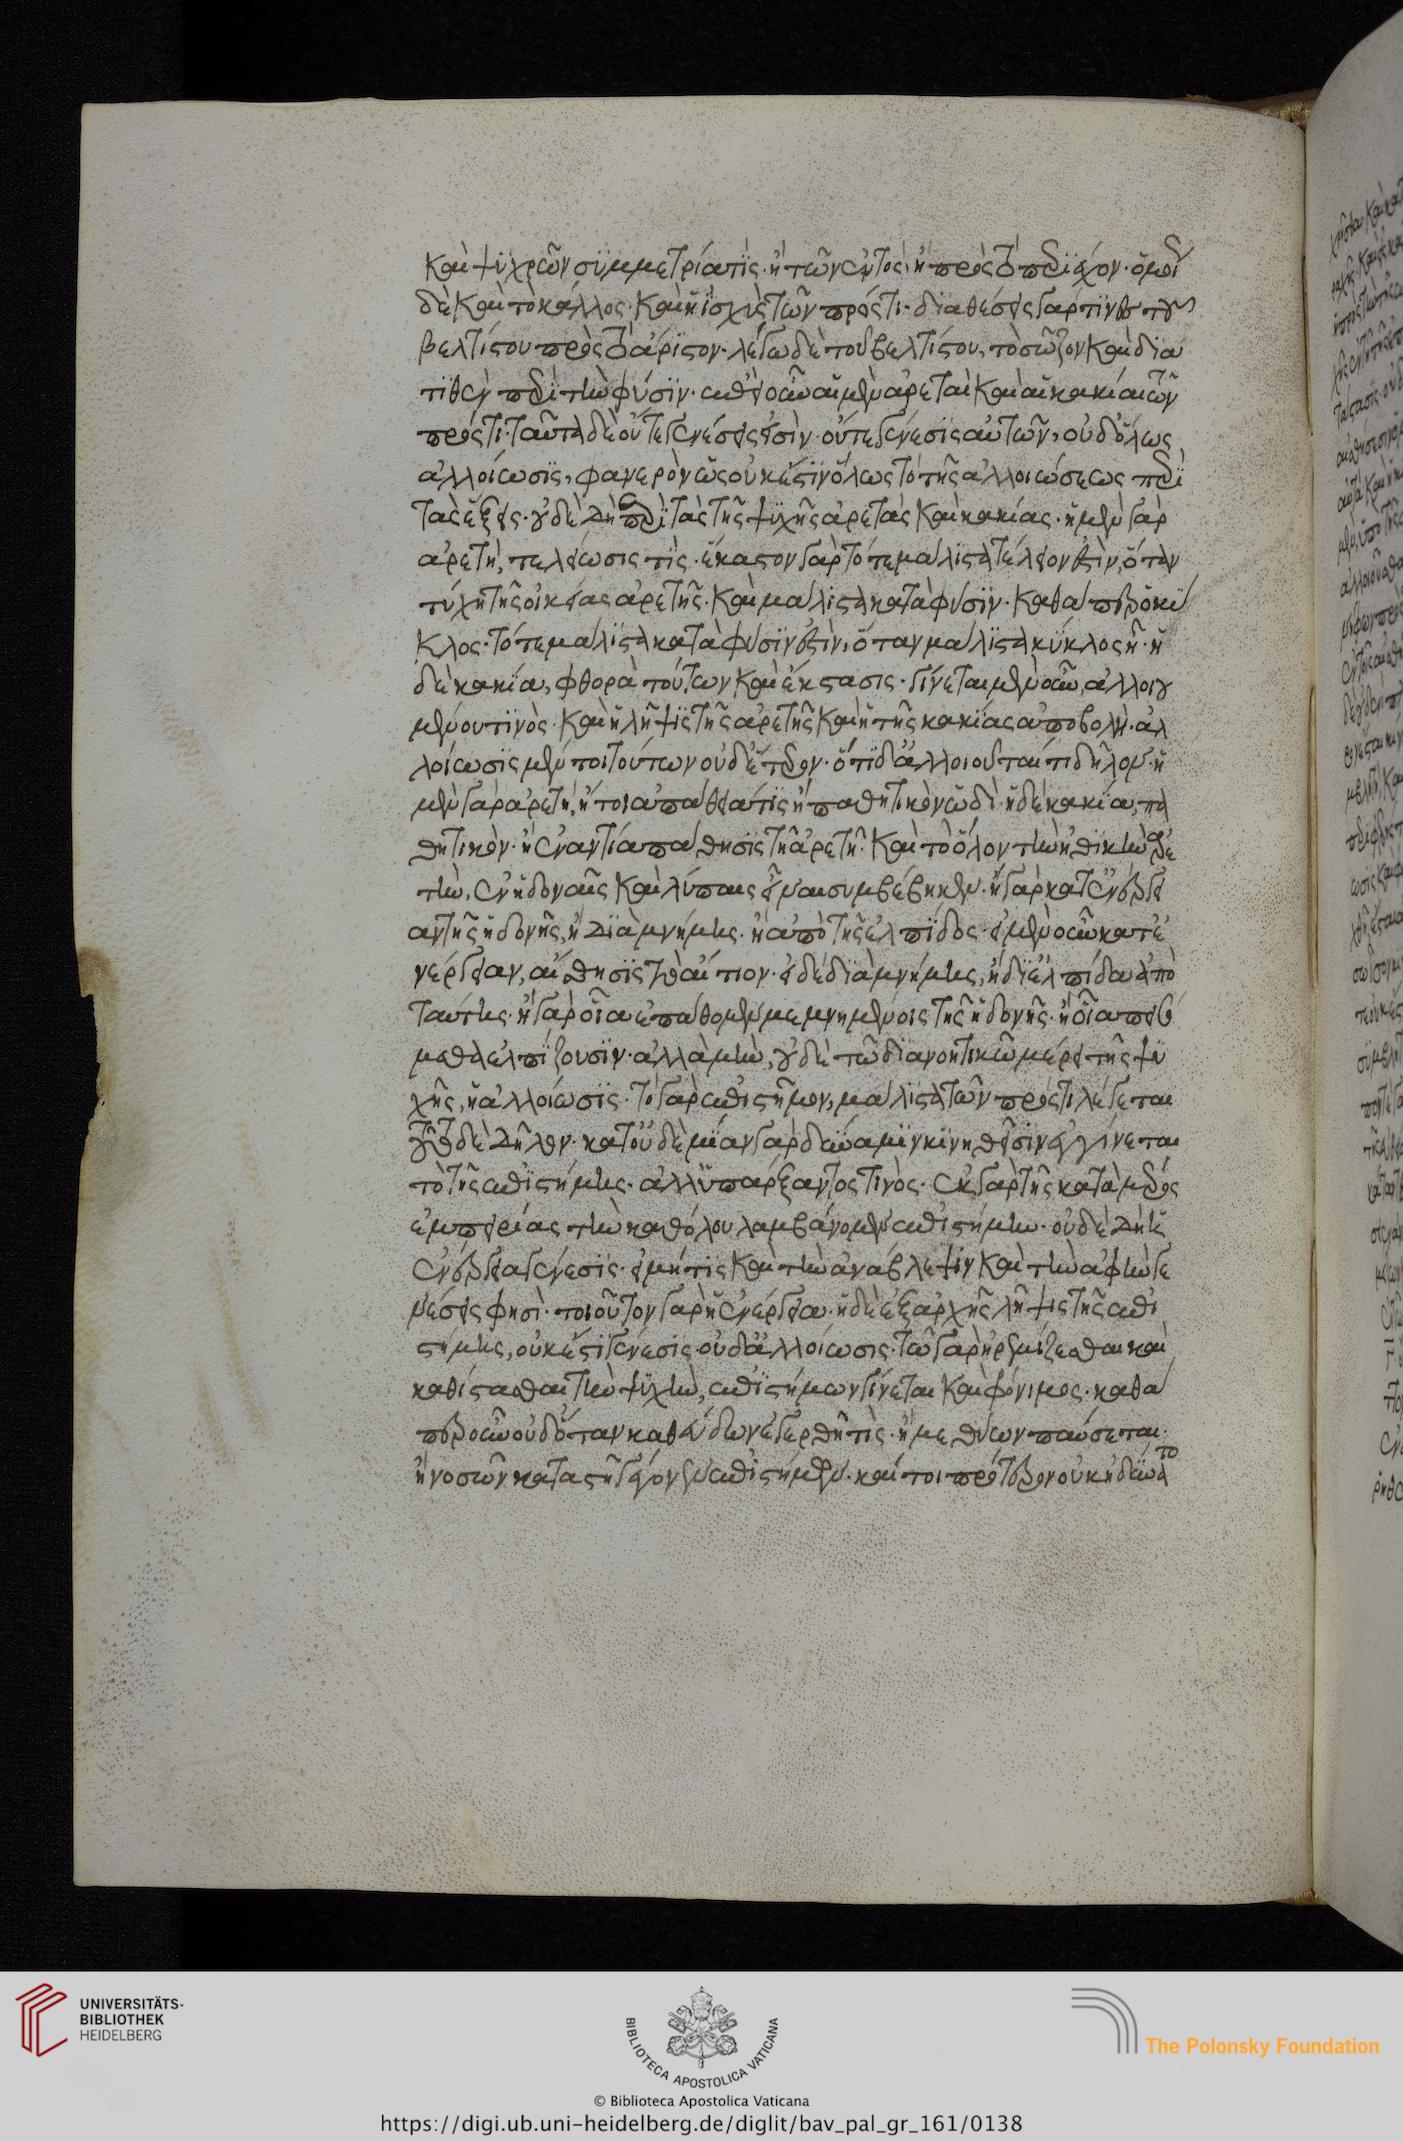 καὶ ψυχρῶν συμμετρία τίς· ἢ τῶν ἐντὸς, ἢ πρὸς τὸ περιέχον· ὁμοί
δὲ καὶ τὸ κάλλος· καὶ ἡ ἰσχὺς τῶν πρός τι· διαθέσεις γάρ τινες τοῦ
βελτίστου πρὸς τὸ ἄριστον· λέγω δὲ τοῦ βελτίστου, τὸ σῶζον καὶ δια
τιθὲν περὶ τὴν φύσιν· ἐπεὶ οὖν αἱ μὲν ἀρεταὶ καὶ αἱ κακίαι τῶν
πρός τι· ταῦτα δὲ οὔτε γενέσεις εἰσὶν· οὔτε γένεσις αὐτῶν, οὐδ' ὅλως
ἀλλοίωσις, φανερὸν ὡς οὐκ ἔστιν ὅλως τὸ τῆς ἀλλοιώσεως περὶ
τὰς ἕξεις· οὐδὲ δὴ περὶ τὰς τῆς ψυχῆς ἀρετὰς καὶ κακίας· ἡ μὲν γὰρ
ἀρετὴ, τελείωσις τίς· ἕκαστον γὰρ τότε μάλιστα τέλειον ἐστὶν, ὅταν
τύχη τῆς οἰκείας ἀρετῆς· καὶ μάλιστα κατὰ φύσιν· καθάπερ ὁ κύ
κλος· τότε μάλιστα κατὰ φύσιν ἐστὶν, ὅταν μάλιστα κύκλος ἦ· ἡ
δὲ κακία, φθορὰ τούτων καὶ ἔκστασις· γίνεται μὲν οὖν, ἀλλοιου
μένου τινὸς· καὶ ἡ λῆψις τῆς ἀρετῆς καὶ ἡ τῆς κακίας ἀποβολὴ· ἀλ
λοίωσις μέν τοι τούτων οὐδέτερον· ὅτι δ' ἀλλοιοῦταί τι δῆλον· ἡ
μὲν γὰρ ἀρετή, ἤτοι ἀπάθειά τις ἢ παθητικὸν ὡδὶ· ἡ δὲ κακία, πα
θητικὸν· ἢ ἐναντία πάθησις τῆ ἀρετῆ· καὶ τὸ ὅλον τὴν ἠθικὴν ἀρε
τὴν, ἐν ἡδοναῖς καὶ λύπαις εἶναι συμβέβηκεν· ἢ γὰρ κατ' ἐνέργει
αν τῆς ἡδονῆς, ἢ διὰ μνήμης· ἢ ἀπὸ τῆς ἐλπίδος· εἰ μὲν οὖν κατ' ἐ
νέργειαν, αἴσθησις τὸ αἴτιον· εἰ δὲ διὰ μνήμης, ἢ δι' ἐλπίδα ἀπὸ
ταύτης· ἢ γὰρ οἷα ἐπάθομεν μεμνημένοις τῆς ἡδονῆς· ἢ οἷα πεισό
μεθα ἐλπίζουσιν· ἀλλὰ μὴν, οὐδὲ τῶ διανοητικῶ μέρει τῆς ψυ
χῆς, ἡ ἀλλοίωσις· τὸ γὰρ ἐπιστῆμον, μάλιστα τῶν πρός τι λέγεται
τοῦτο δὲ δῆλον· κατ' οὐδὲ μίαν γὰρ δύναμιν κινηθεῖσιν ἐγγίνεται
τὸ τῆς ἐπιστήμης· ἀλλ' ὑπάρξαντος τινὸς· ἐκ γὰρ τῆς κατὰ μέρος
ἐμπειρίας τὴν καθόλου λαμβάνομεν ἐπιστήμην· οὐδὲ δὴ ἡ
ἐνέργεια γένεσις· εἰ μή τις καὶ τὴν ἀνάβλεψιν καὶ τὴν ἀφὴν γε
νέσεις φησὶ· τοιοῦτον γὰρ ἡ ἐνέργεια· ἡ δὲ ἐξ ἀρχῆς λῆψις τῆς ἐπι
στήμης, οὐκ ἔστι γένεσις οὐδ' ἀλλοίωσις· τῶ γὰρ ἠρεμίζεσθαι καὶ
καθίστασθαι τὴν ψυχὴν, ἐπιστήμων γίνεται καὶ φρόνιμος· καθά
περ οὖν οὐδ' ὅταν καθεύδων ἐγερθῆ τὶς· ἢ μεθύων παύσεται·
ἢ νοσῶν καταστῆ γέγονεν ἐπιστήμων· καίτοι πρότερον οὐκ ἠδύνατο
UNIVERSITÄTS-
BIBLIOTHEK
HEIDELBERG
BIBLIOTECA APOSTOLICA VATICANA
The Polonsky Foundation
© Biblioteca Apostolica Vaticana
https://digi.ub.uni-heidelberg.de/diglit/bav_pal_gr_161/0138